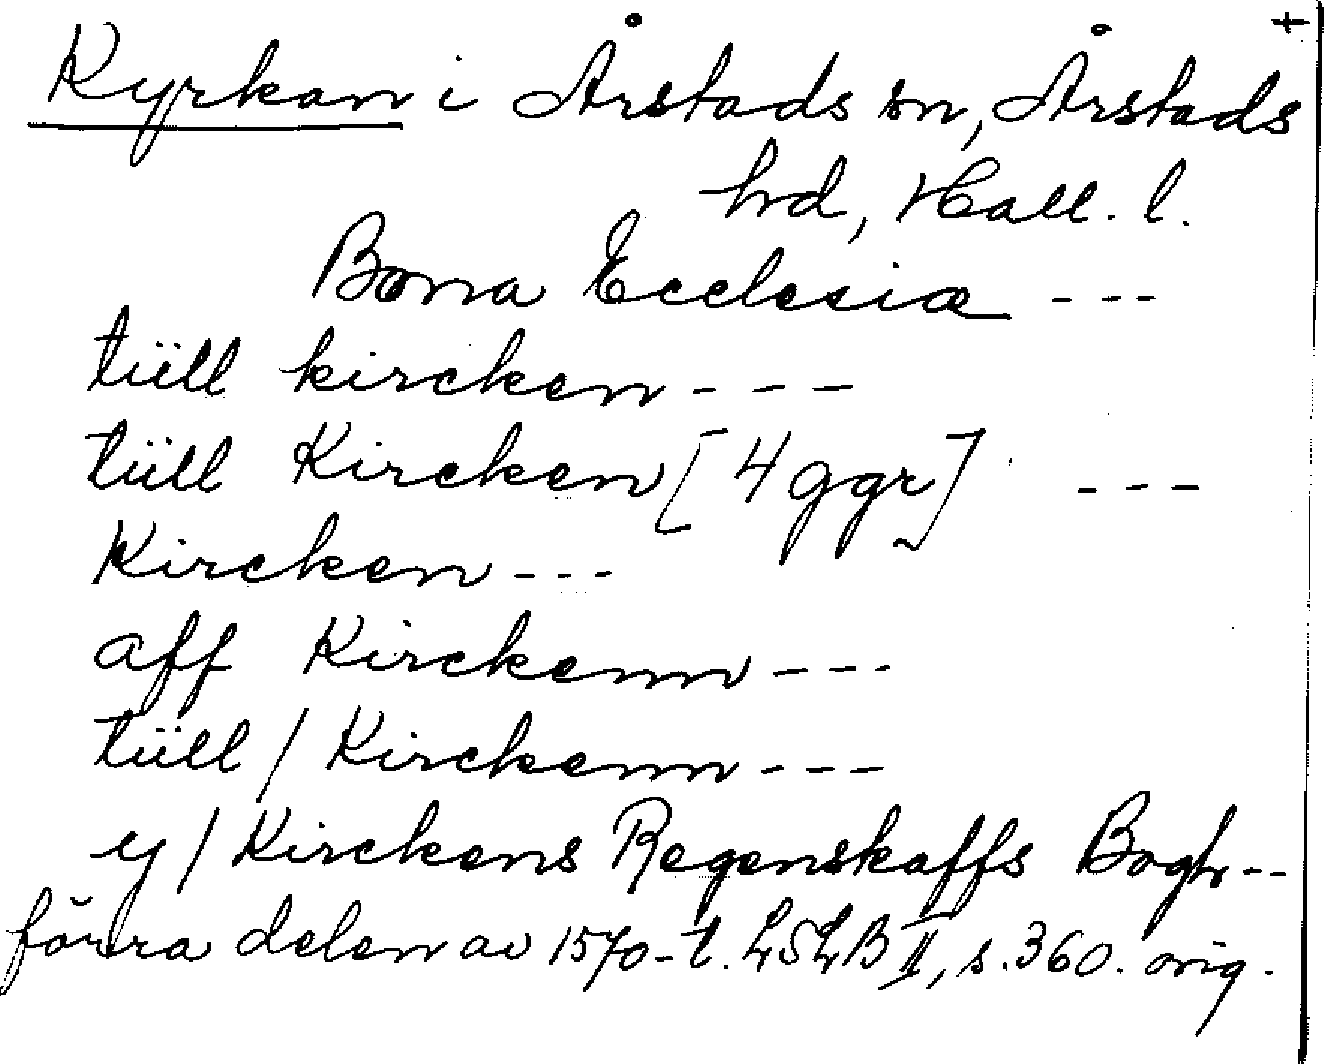 +
Kyrkan i Årstads sn, Årstads
hrd, Hall. l.
Bona Ecclesiæ ---
tüll kircken ---
tüll Kircken [4 ggr] ---
Kircken ---
aff Kirckenn ---
tüll / Kirckenn ---
y / Kirckens Regenskaffs Bogh --
förra delen av 1570-t. LSLB II, s. 360. orig.